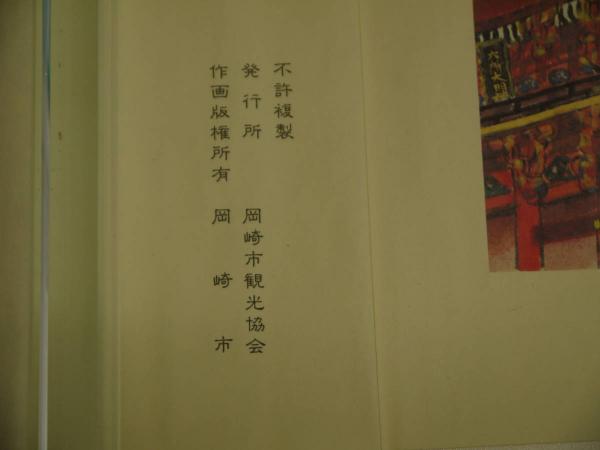 不許複製
発行所 岡崎市観光協会
作画版権所有 岡崎市
六所大明